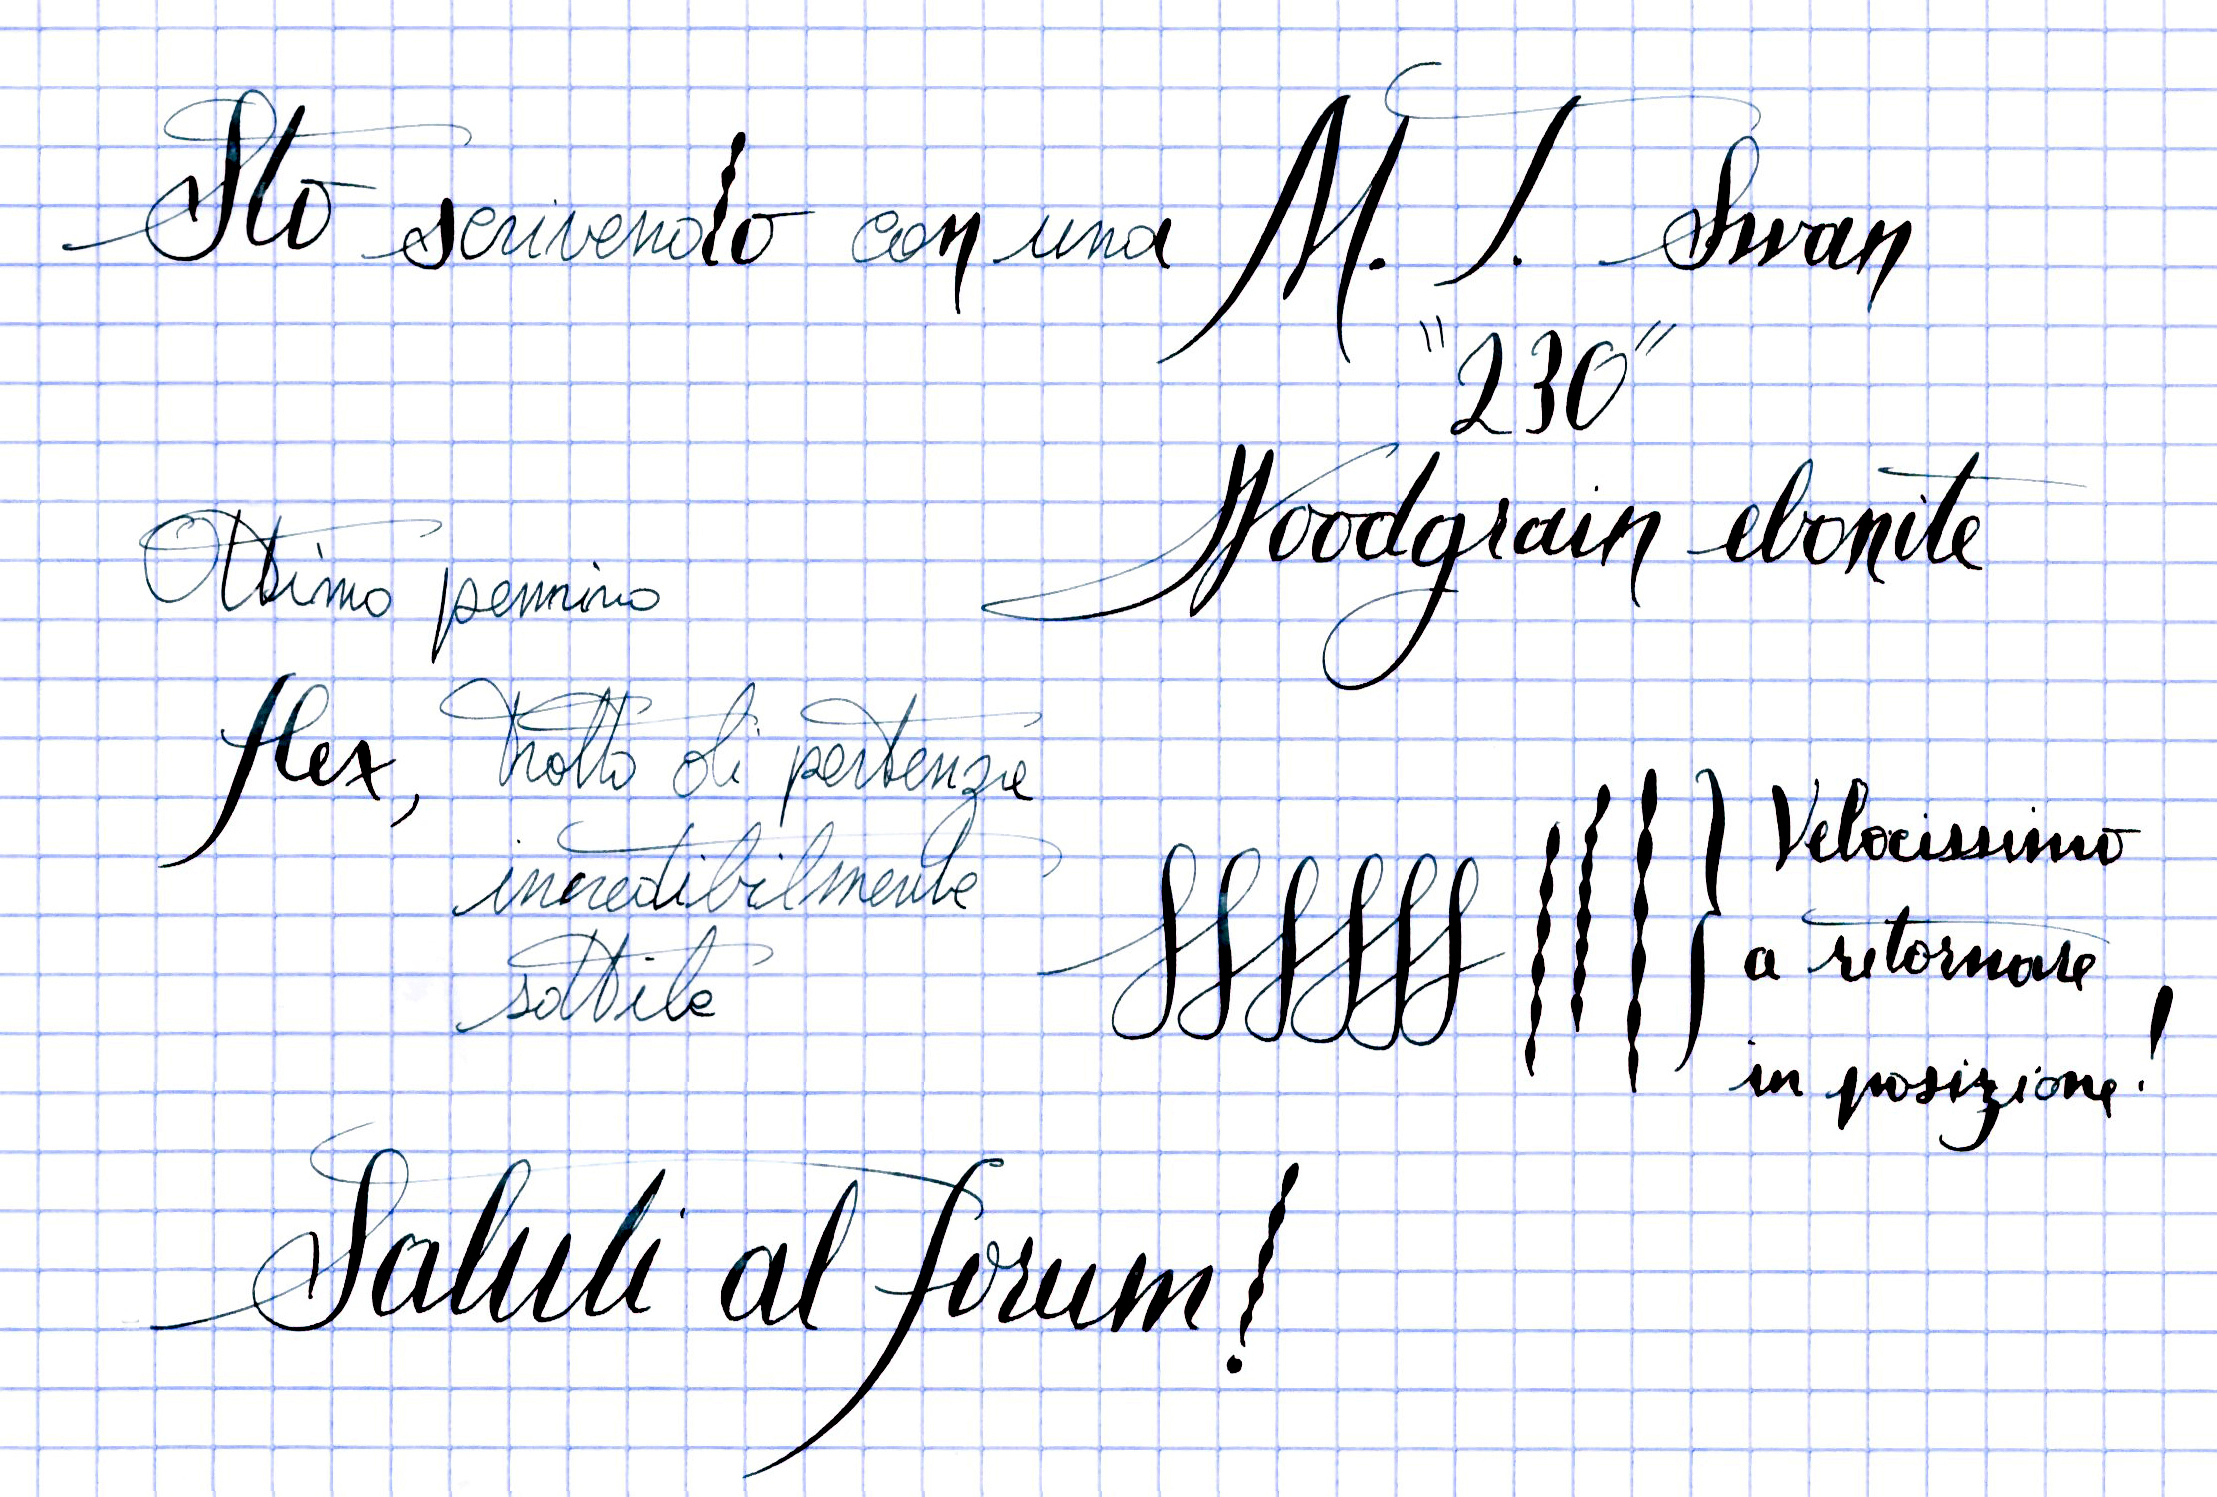 Sto scrivendo con una M. T. Swan
"230"
Woodgrain ebonite
Ottimo pennino
flex, tratto di partenza
incredibilmente
sottile
Velocissimo
a ritornare
in posizione!
Saluti al forum!